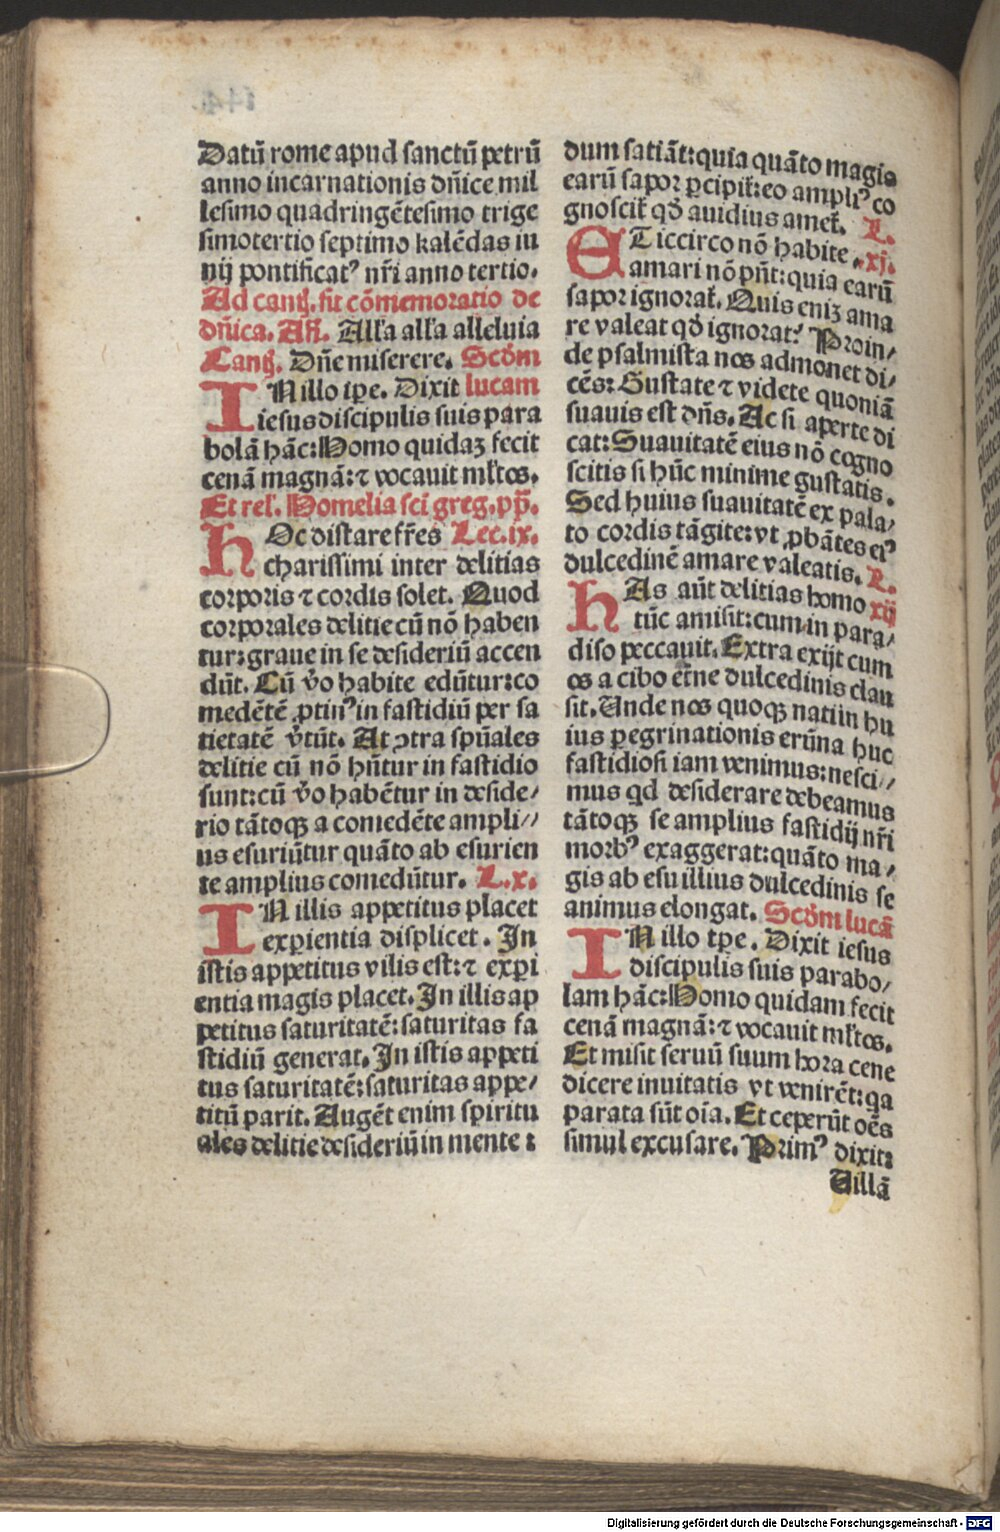 Datū rome apud ſanctū petrū
anno incarnationis dn̄ice mil
leſimo quadringēteſimo trige
ſimotertio ſeptimo kalēdas iu
nij pontificatꝰ nr̄i anno tertio.
Ad cantꝫ. fit cōmemoratio de
dn̄ica. Añ. Alľa alľa alleluia
Cantꝫ. Dn̄e miſerere. Scd̄m
IN illo tꝑe. Dixit lucam
ieſus diſcipulis ſuis para
bolā hāc: Homo quidaꝫ fecit
cenā magnā: ⁊ vocauit ml̓tos.
Et rel̓. Homelia ſci greg. pp̄.
HOc diſtare fr̄es Lec. ix.
chariſſimi inter delitias
corporis ⁊ cordis ſolet. Quod
corporales delitie cū nō haben
tur: graue in ſe deſideriū accen
dūt. Cū v̄o habite edūtur: co
medētē ꝓtinꝰ in faſtidiū per ſa
tietatē v̄tūt. At ↄtra ſpūales
delitie cū nō hn̄tur in faſtidio
ſunt: cū v̄o habētur in deſide⸗
rio tātoqꝫ a comedēte ampli⸗
us eſuriūtur quāto ab eſurien
te amplius comedūtur. L. x.
IN illis appetitus placet
experientia diſplicet. In
iſtis appetitus vilis eſt: ⁊ expi
entia magis placet. In illis ap
petitus ſaturitatē: ſaturitas fa
ſtidiū generat. In iſtis appeti
tus ſaturitatē: ſaturitas appe⸗
titū parit. Augēt enim ſpiritu
ales delitie deſideriū in mente :
dum ſatiāt: quia quāto magis
earū ſapor ꝑcipit̉: eo ampliꝰ co
gnoſcit̉ qd̄ auidius amet̉. L.
ET iccirco nō habite . xj.
amari nō pn̄t: quia earū
ſapor ignorat̉. Quis eniꝫ ama
re valeat qd̄ ignorat? Proin⸗
de pſalmiſta nos admonet di⸗
cēs: Guſtate ⁊ videte quoniā
ſuauis eſt dn̄s. Ac ſi aperte di
cat: Suauitatē eius nō cogno
ſcitis ſi hūc minime guſtatis.
Sed huius ſuauitatē ex pala⸗
to cordis tāgite: vt ꝓbātes eiꝰ
dulcedinē amare valeatis. L.
HAs aūt delitias homo xij
tūc amiſit: cum in para⸗
diſo peccauit. Extra exijt cum
os a cibo et̄ne dulcedinis clau
ſit. Unde nos quoqꝫ nati in hu
ius ꝑegrinationis erūna huc
faſtidioſi iam venimus: neſci⸗
mus qd deſiderare debeamus
tātoqꝫ ſe amplius faſtidij nr̄i
morbꝰ exaggerat: quāto ma⸗
gis ab eſu illius dulcedinis ſe
animus elongat. Scd̄m lucā
IN illo tꝑe. Dixit ieſus
diſcipulis ſuis parabo⸗
lam hāc: Homo quidam fecit
cenā magnā: ⁊ vocauit ml̓tos.
Et miſit ſeruū ſuum hora cene
dicere inuitatis vt venirēt: qa
parata ſūt oīa. Et ceperūt oēs
ſimul excuſare. Primꝰ dixit:
Uillā
Digitalisierung gefördert durch die Deutsche Forschungsgemeinschaft - DFG